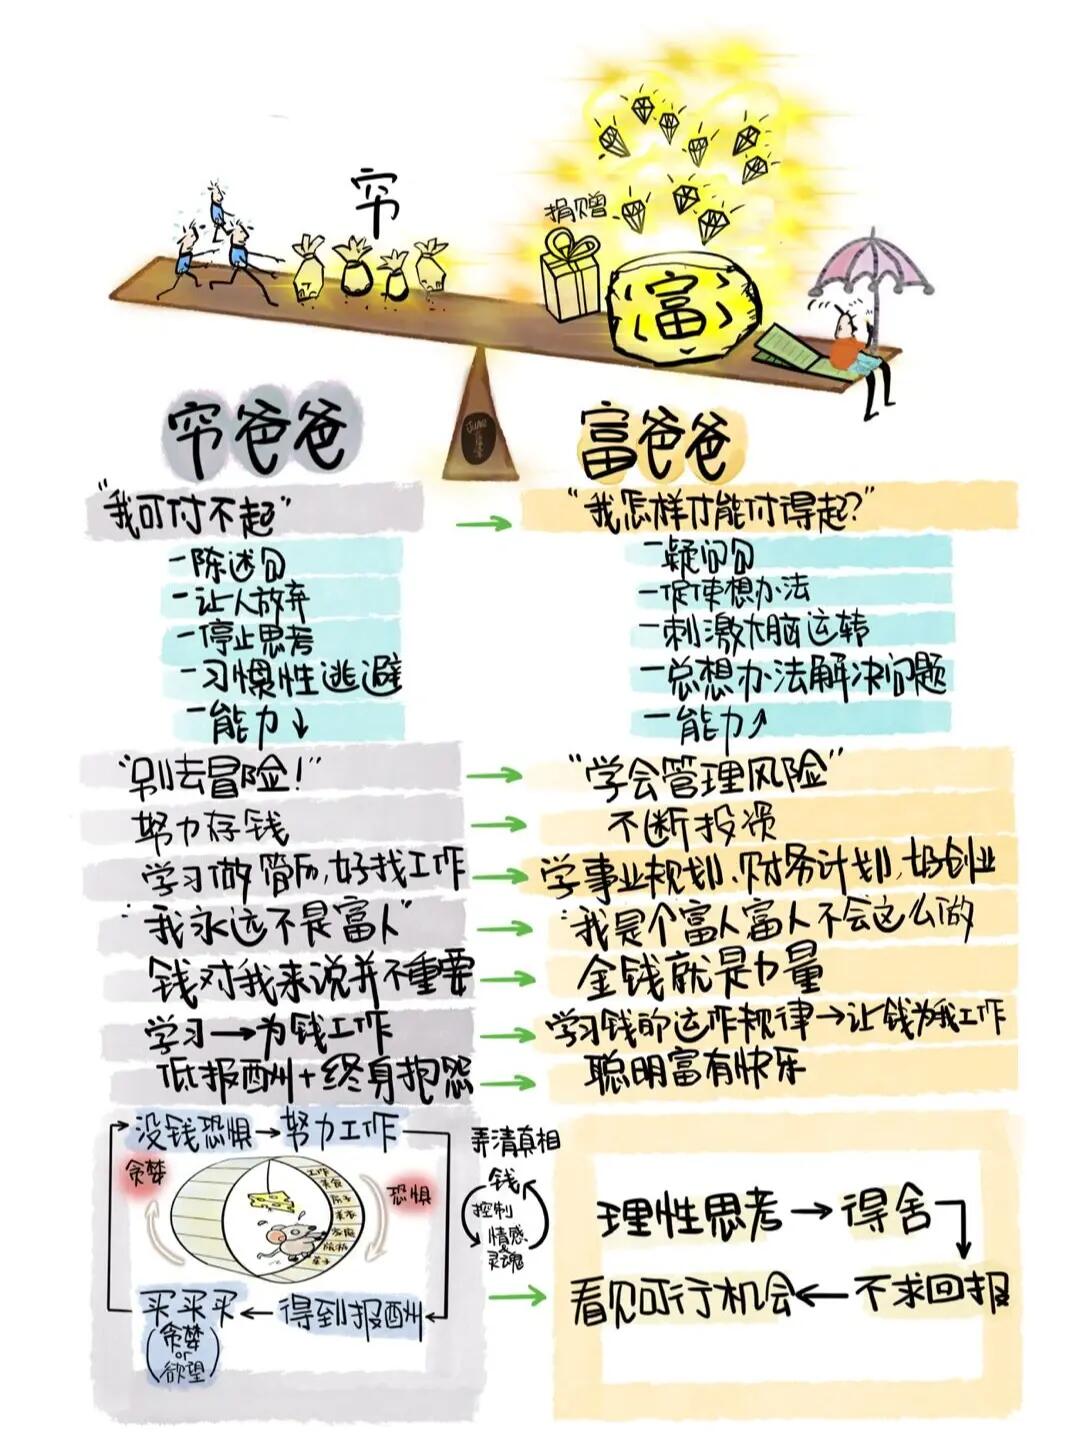 穷
捐赠
富
June
穷爸爸
富爸爸
"我可付不起"
"我怎样才能付得起?"
-陈述句
-让人放弃
-停止思考
-习惯性逃避
-能力↓
-疑问句
-促使想办法
-刺激大脑运转
-总想办法解决问题
-能力↗
"别去冒险!"
→
"学会管理风险"
努力存钱
→
不断投资
学习做简历,好找工作
→
学事业规划、财务计划,好创业
"我永远不是富人"
→
"我是个富人富人不会这么做
钱对我来说并不重要
→
金钱就是力量
学习→为钱工作
→
学习钱的运作规律→让钱为我工作
低报酬+终身抱怨
→
聪明富有快乐
没钱恐惧→努力工作
贪婪
恐惧
工作
美食
房子
家庭
旅游
车子
买买买←得到报酬
(贪婪
or
欲望)
弄清真相
钱
控制
情感
灵魂
理性思考→得舍
看见可行机会←不求回报